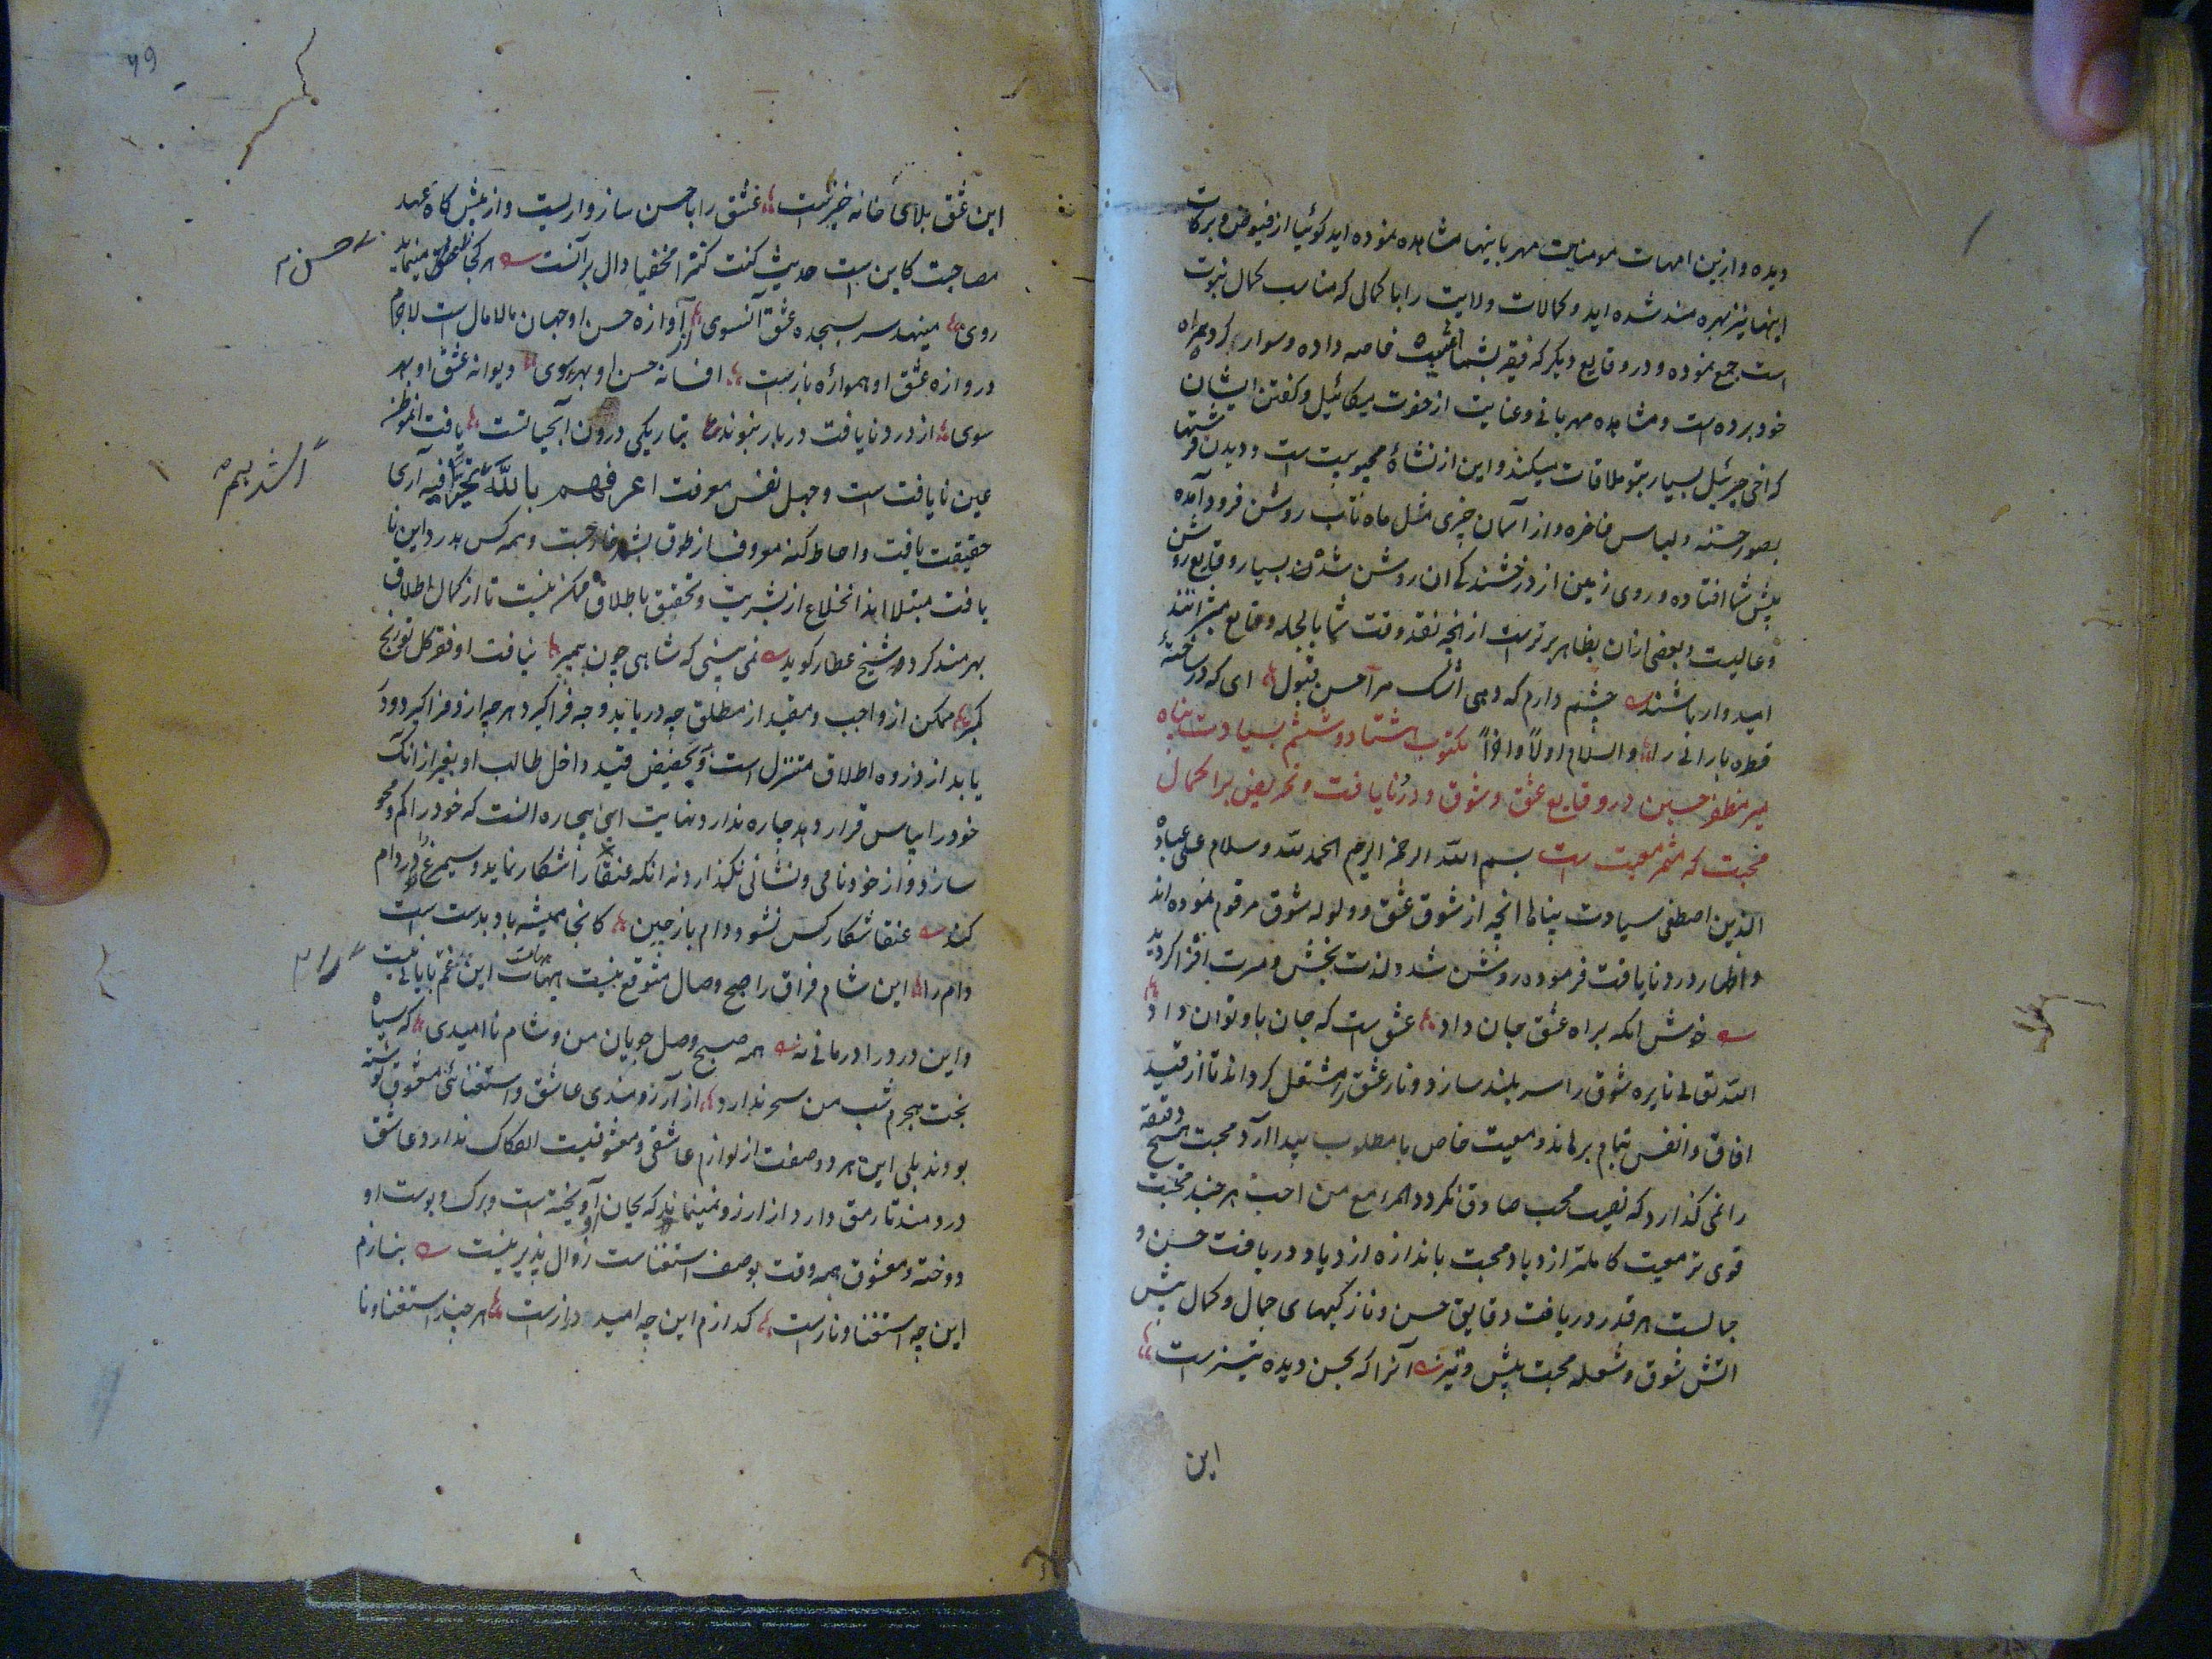 دیده و ازین امهات مومنین مهربانیها مشاهده نموده اید گوئیا از فیوض و برکات
اینها نیز بهره مند شده اید و کمالات ولایت را با کمالی که مناسب کمال نبوت
است جمع نموده و در وقایع دیگر که فقیر بشما خاصه داده و سوار کرده همراه
خود برده است و مشاهده مهربانی و عنایت از حضرت میکائیل و گفتن ایشان
که اخی جبرئیل بسیار بتو ملاقات میکند و این از نشأهٔ محبوبیت است و دیدن فرشتها
بصور حسنه و لباس فاخره و از آسمان چیزی مثل ماه تاب روشن فرود آمده
پیش شما افتاده و روی زمین از درخشندگی ان روشن شدن بسیار وقایع روشن
و عالیست و بعضی ازان بظاهر برترست از انچه نقد وقت شما بالجمله وقایع مبشراتند
امیدوار باشند چشم دارم که دهی اشک مرا حسن قبول ای که در ساختهٔ
قطره بارانی را والسلام اولاً و آخراً مکتوب هشتاد و ششم بسیادت پناه
میر مظفر حسین در وقایع عشق و شوق و درد نایافت و تحریض بر کمال
محبت که مثمر معیت است بسم الله الرحمن الرحیم الحمد لله و سلام علی عباده
الذین اصطفی سیادت پناها انچه از شوق عشق و ولوله شوق مرقوم نموده اند
و اظهار درد نایافت فرموده روشن شد و لذت بخش و مسرت افزا گردید
خوش انکه براه عشق جان داد عشق ست که جان باو توان داد
الله تعالی نایره شوق را سر بلند سازد و نار عشق را مشتعل گرداند تا از قید
افاق و انفس بتمام برهاند و معیت خاص با مطلوب پیدا آرد محبت هیچ دقیقه
را نمی گذارد که نصیب محب صادق نگردد المرء مع من احب هر چند محبت
قوی تر معیت کاملتر ازدیاد محبت باندازه ازدیاد دریافت حسن و
جمالست هر قدر دریافت دقایق حسن و نازکیهای جمال و کمال بیش
اتش شوق و شعله محبت بیش و تیز آنرا که بحسن دیده تیز است
این
۷۹
این عشق بلای خانه خیز است عشق را با حسن سازواریست و از پیش گاه عهد
مصاحبت کاین است حدیث کنت کنزا مخفیا دال بر آنست هر کجا مینماید
حسن
روی مینهد سر بسجده عشق آنسوی از آوازه حسن او جهان مالامال است لاجرم
دروازه عشق او همواره بازست افسانه حسن او بهر سوی دیوانه عشق او بهر
سوی از درد نایافت دربار بنوند بتاریکی درون آبحیاتست یافت
عین نایافت است و جهل نفس معرفت اعرفهم بالله تحیرا فیه آری
اشدهم
حقیقت یافت و احاطه کنه معروف از طوق بشر خارجست و همه کس بدرد این نا
یافت مبتلا اند انخلاع از بشریت و تحقیق باطلاق ممکن نیست تا از کمال اطلاق
بهرمند گردد شیخ عطار گوید نمی بینی که شاهی چون پیمبر نیافت او فقر کل تو رنج
کم بر ممکن از واجب و مقید از مطلق چه دریابد و چه فراگیرد هر چه ازو فراگیرد و در
یابد از ذروه اطلاق متنزل است و بحضیض قید داخل طالب او بغیر از انک
خود را بیاس قرار دهد چاره ندارد نهایت این بیچاره انست که خود را گم و محو
سازد و از خود نامی و نشانی نگذارد نه انکه عنقا را شکار نماید و سیمرغ را در دام
کند عنقا شکار کس نشود دام باز چین کانجا همیشه باد بدست است
دام را این شام فراق را صبح وصال متوقع نیست هیهات این غم را پایانی نیست
و این درد را درمانی نه همه صبح وصل جویان من و شام ناامیدی که سیاه
بخت هجرم شب من سحر ندارد از آرزومندی عاشق و استغنائی معشوق نوشته
بودند بلی این هر دو صفت از لوازم عاشقی و معشوقیت انفکاک ندارد عاشق
دردمند تا رمق دارد از ارزو نمی ماند که بجان آویخته است و برگ و پوست او
دوخته و معشوق همه وقت بوصف استغناست زوال پذیر نیست بنازم
این چه استغنا و نازست گدازم این چه امید درازست هر چند استغنا و نا